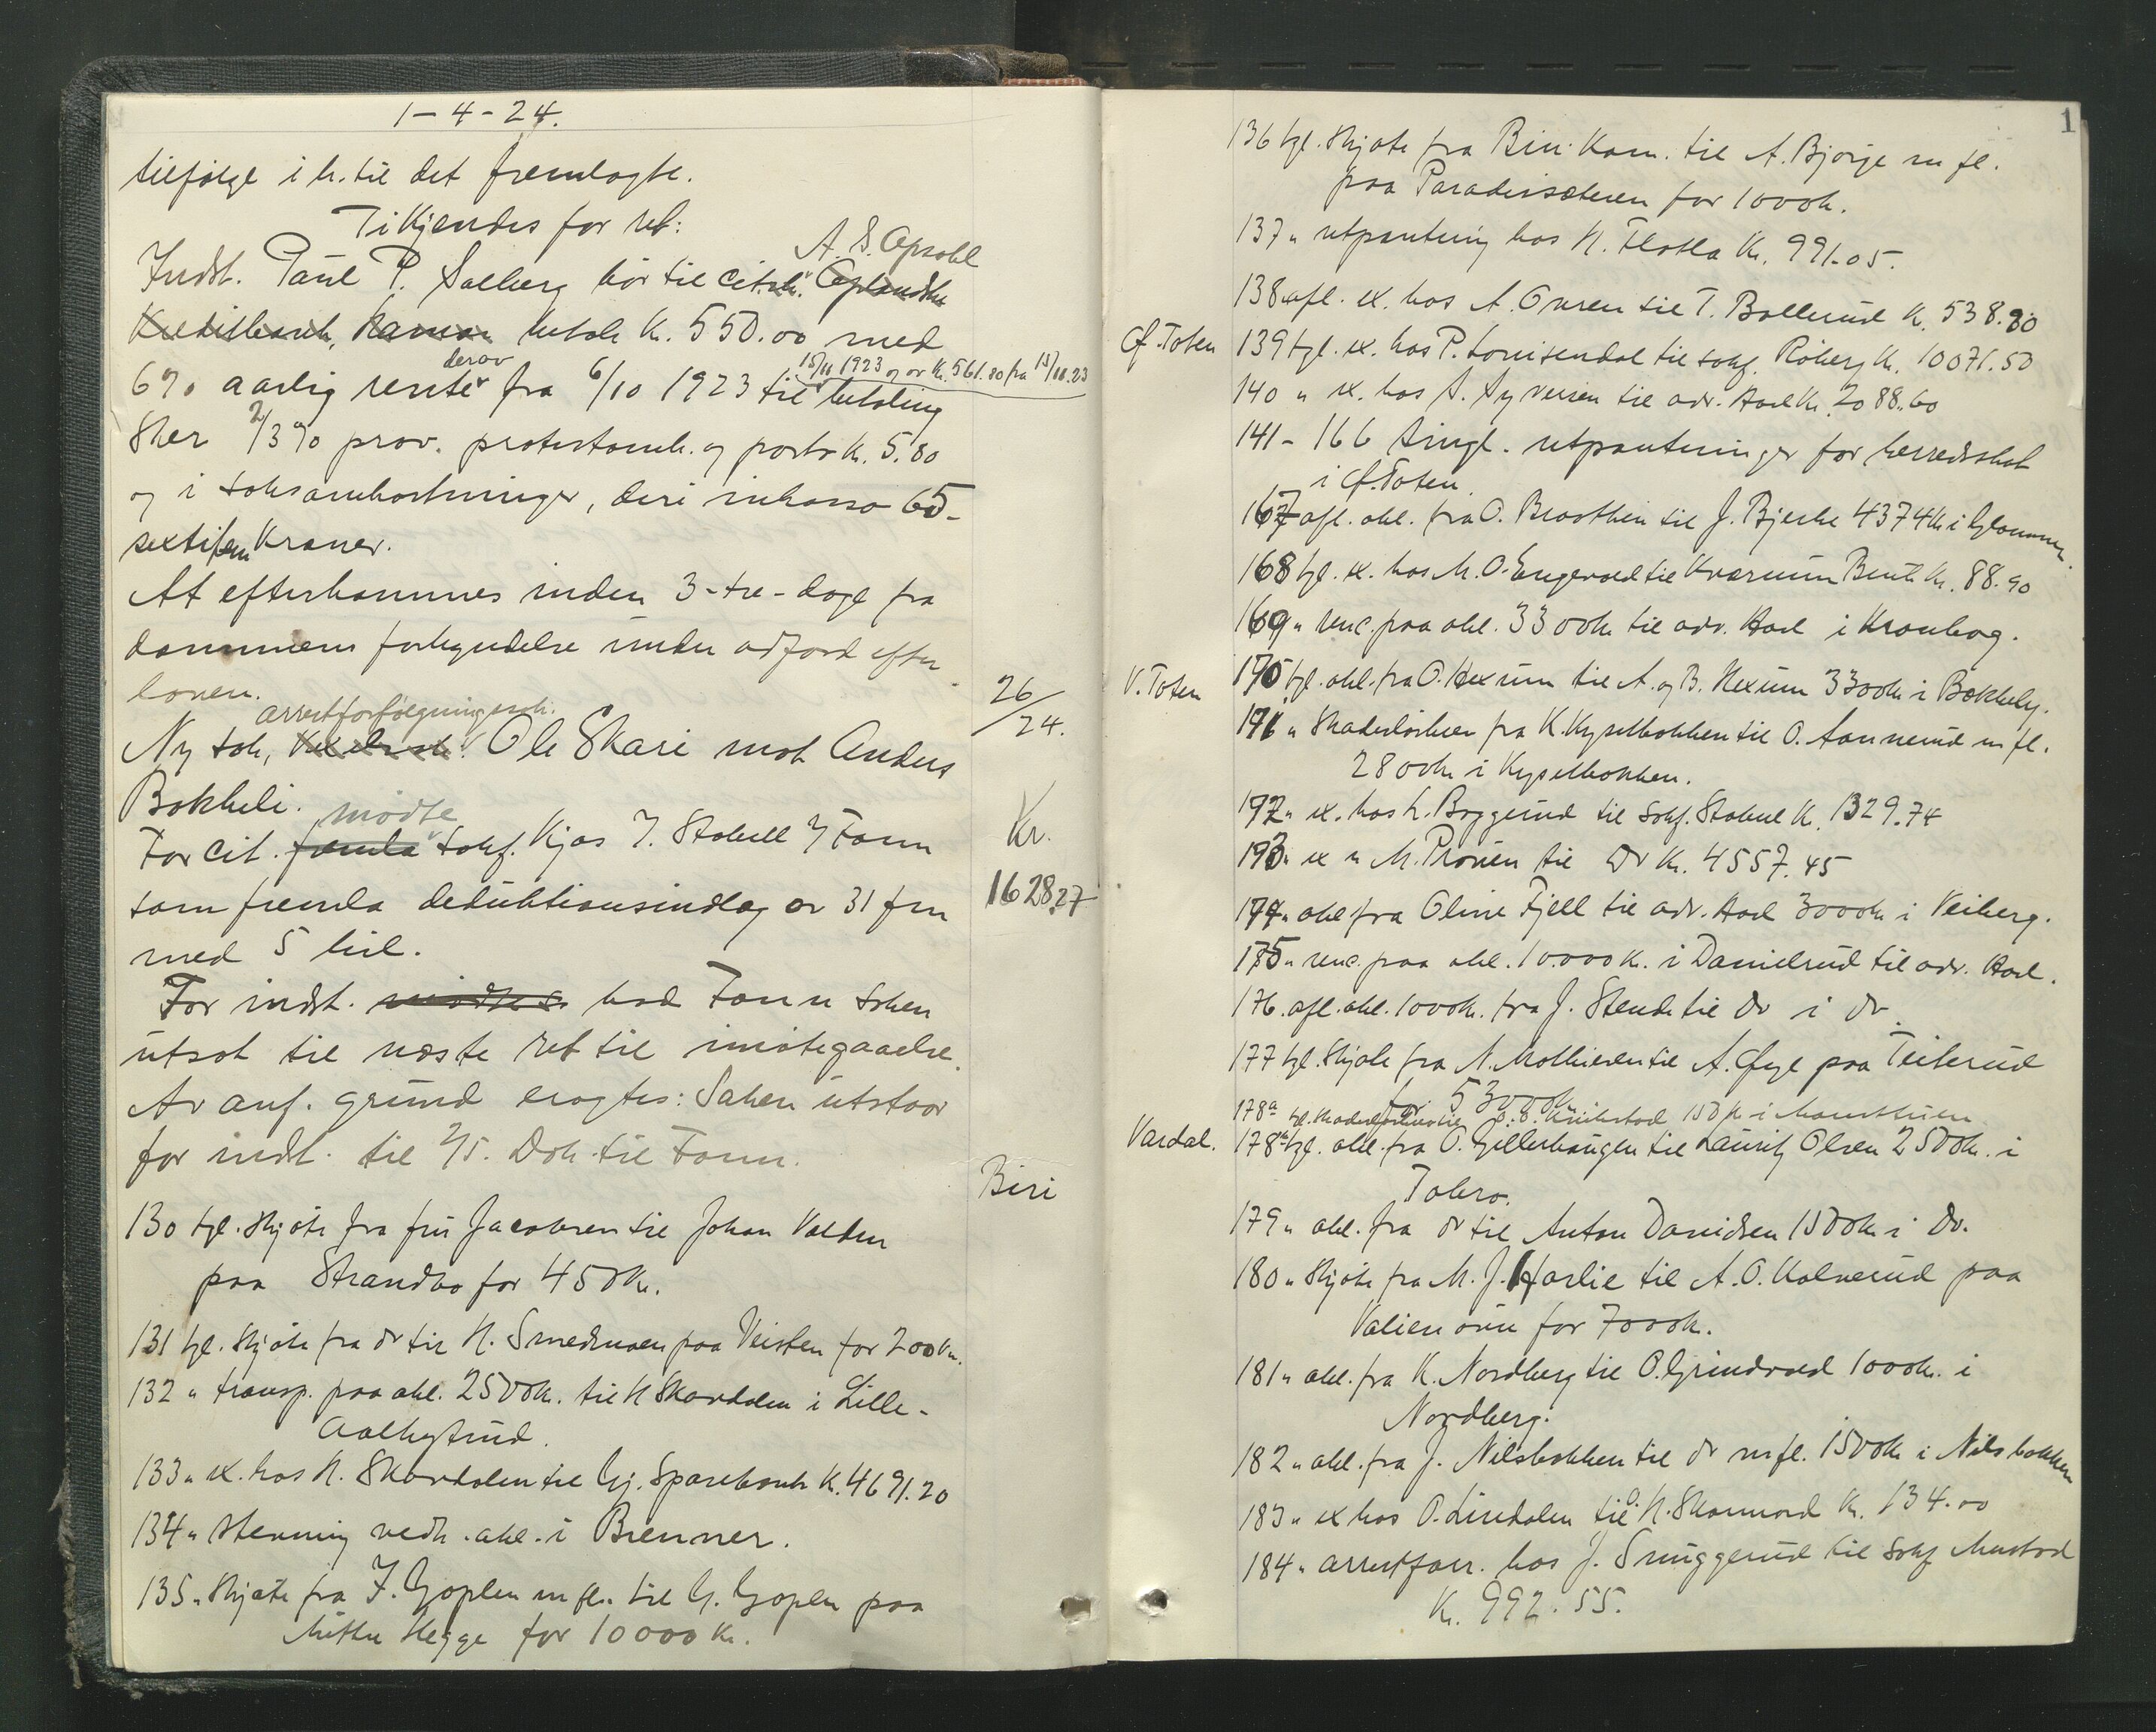 1-4-24.
tilfølge i h. til det fremlagte.
Ti Kjendes for ret:
A. S. Opsahl
Indst. Paul P. Salberg bør til cit. Oplandske
Kreditbank, Hamar betale Kr. 550.00 med
derav 15/11 1923 og av Kr. 561.80 fra 15/11.23
6% aarlig rente fra 6/10 1923 til betaling
sker 2/3% prov. protestomk. og porto Kr. 5.80
og i saksomkostninger, deri inkasso 65-
sextifem Kroner.
At efterkommes inden 3-tre-dage fra
dommens forkyndelse under adfærd efter
loven.
26/24.
arrestforfølgningssak.
Ny sak, Ole Skari mot Anders
Bakkeli.
Kr.
1628.27
mødte
For cit. fremla sakf. Kjos J. Stabell v/ Fonn
som fremla deduktionsindlæg av 31 fm
med 5 bil.
For indst. mødte bad Fonn saken
utsat til næste ret til imøtegaaelse.
Av anf. grund eragtes: Saken utstaar
for indst. til 2/5. Dok. til Fonn.
Biri
130 tgl. skjøte fra fru Jacobsen til Johan Valden
paa Strandbo for 450 Kr.
131 tgl. skjøte fra do til N. Smedmoen paa Veisten for 200 Kr.
132 " transp. paa obl. 2500 k. til N Skardalen i Lille-
Aalhystud.
133 " ex. hos N. Skardalen til Gj. Sparebank K. 4691.20
134 " stevning vedk. obl. i Brenner.
135 " skjøte fra F. Goplen m fl. til G. Goplen paa
Midtre Hegge for 10000 Kr.
1
136 tgl. skjøte fra Biri Kom. til A. Bjørge m fl.
paa Paradissæteren for 1000 k.
137 " utpantning hos N. Flatla Kr. 991.05.
138 avl. ex. hos A. Onren til T. Bollerud K. 538.80
Ø. Toten
139 tgl. ex. hos P. Louisendal til sakf. Røberg K. 10071.50
140 " ex. hos S. Syversen til adv. Aarl Kr. 2088.60
141 - 166 tingl. utpantninger for herredsskat
i Ø. Toten.
167 afl. obl. fra O. Braathen til J. Bjerke 4374 Kr i Glommen.
168 tgl. ex. hos M. O. Engevold til Kværnum Bruk Kr. 88.90
169 " renc. paa obl. 3300 kr til adv. Aarl i Kronborg.
V. Toten
170 tgl. obl. fra O. Hexum til A. og B. Hexum 3300 k i Bækkely.
171 " Skadesløsbrev fra K. Kyselbakken til O. Aannerud m fl.
2800 k i Kyselbakken.
172 " ex. hos L. Baggerud til Sakf. Stabell K. 1329.74
173 " ex " M. Prøven til Do K. 4557.45
174 " obl fra Oline Fjell til adv. Aarl 3000 k i Veiberg.
175 " renc. paa obl. 10.000 K. i Danielrud til adv. Aarl.
176. afl. obl. 1000 k. fra J. Stende til Do i do.
177 tgl. skjøte fra N. Mathiesen til A. Øye paa Teiterud
for 5300 k
178a tgl. til
Vardal.
178b tgl. obl. fra O. Gillerhaugen til Lauritz Olsen 2500 k. i
Tobro.
179 " obl. fra do til Anton Davidsen 1500 k i do.
180 " skjøte fra M. J. Harlie til A. O. Kalverud paa
Valien øvre for 7000 k.
181 " obl. fra K. Nordberg til O. Grindvold 1000 k. i
Nordberg.
182 " obl. fra J. Nilsbakken til do m fl. 1500 k i Nilsbakken
183 " ex hos O. Lindalen til N. Skonnord Kr. 134.00
184 " arrestforr. hos J. Snuggerud til sakf Mustad
K. 992.55.